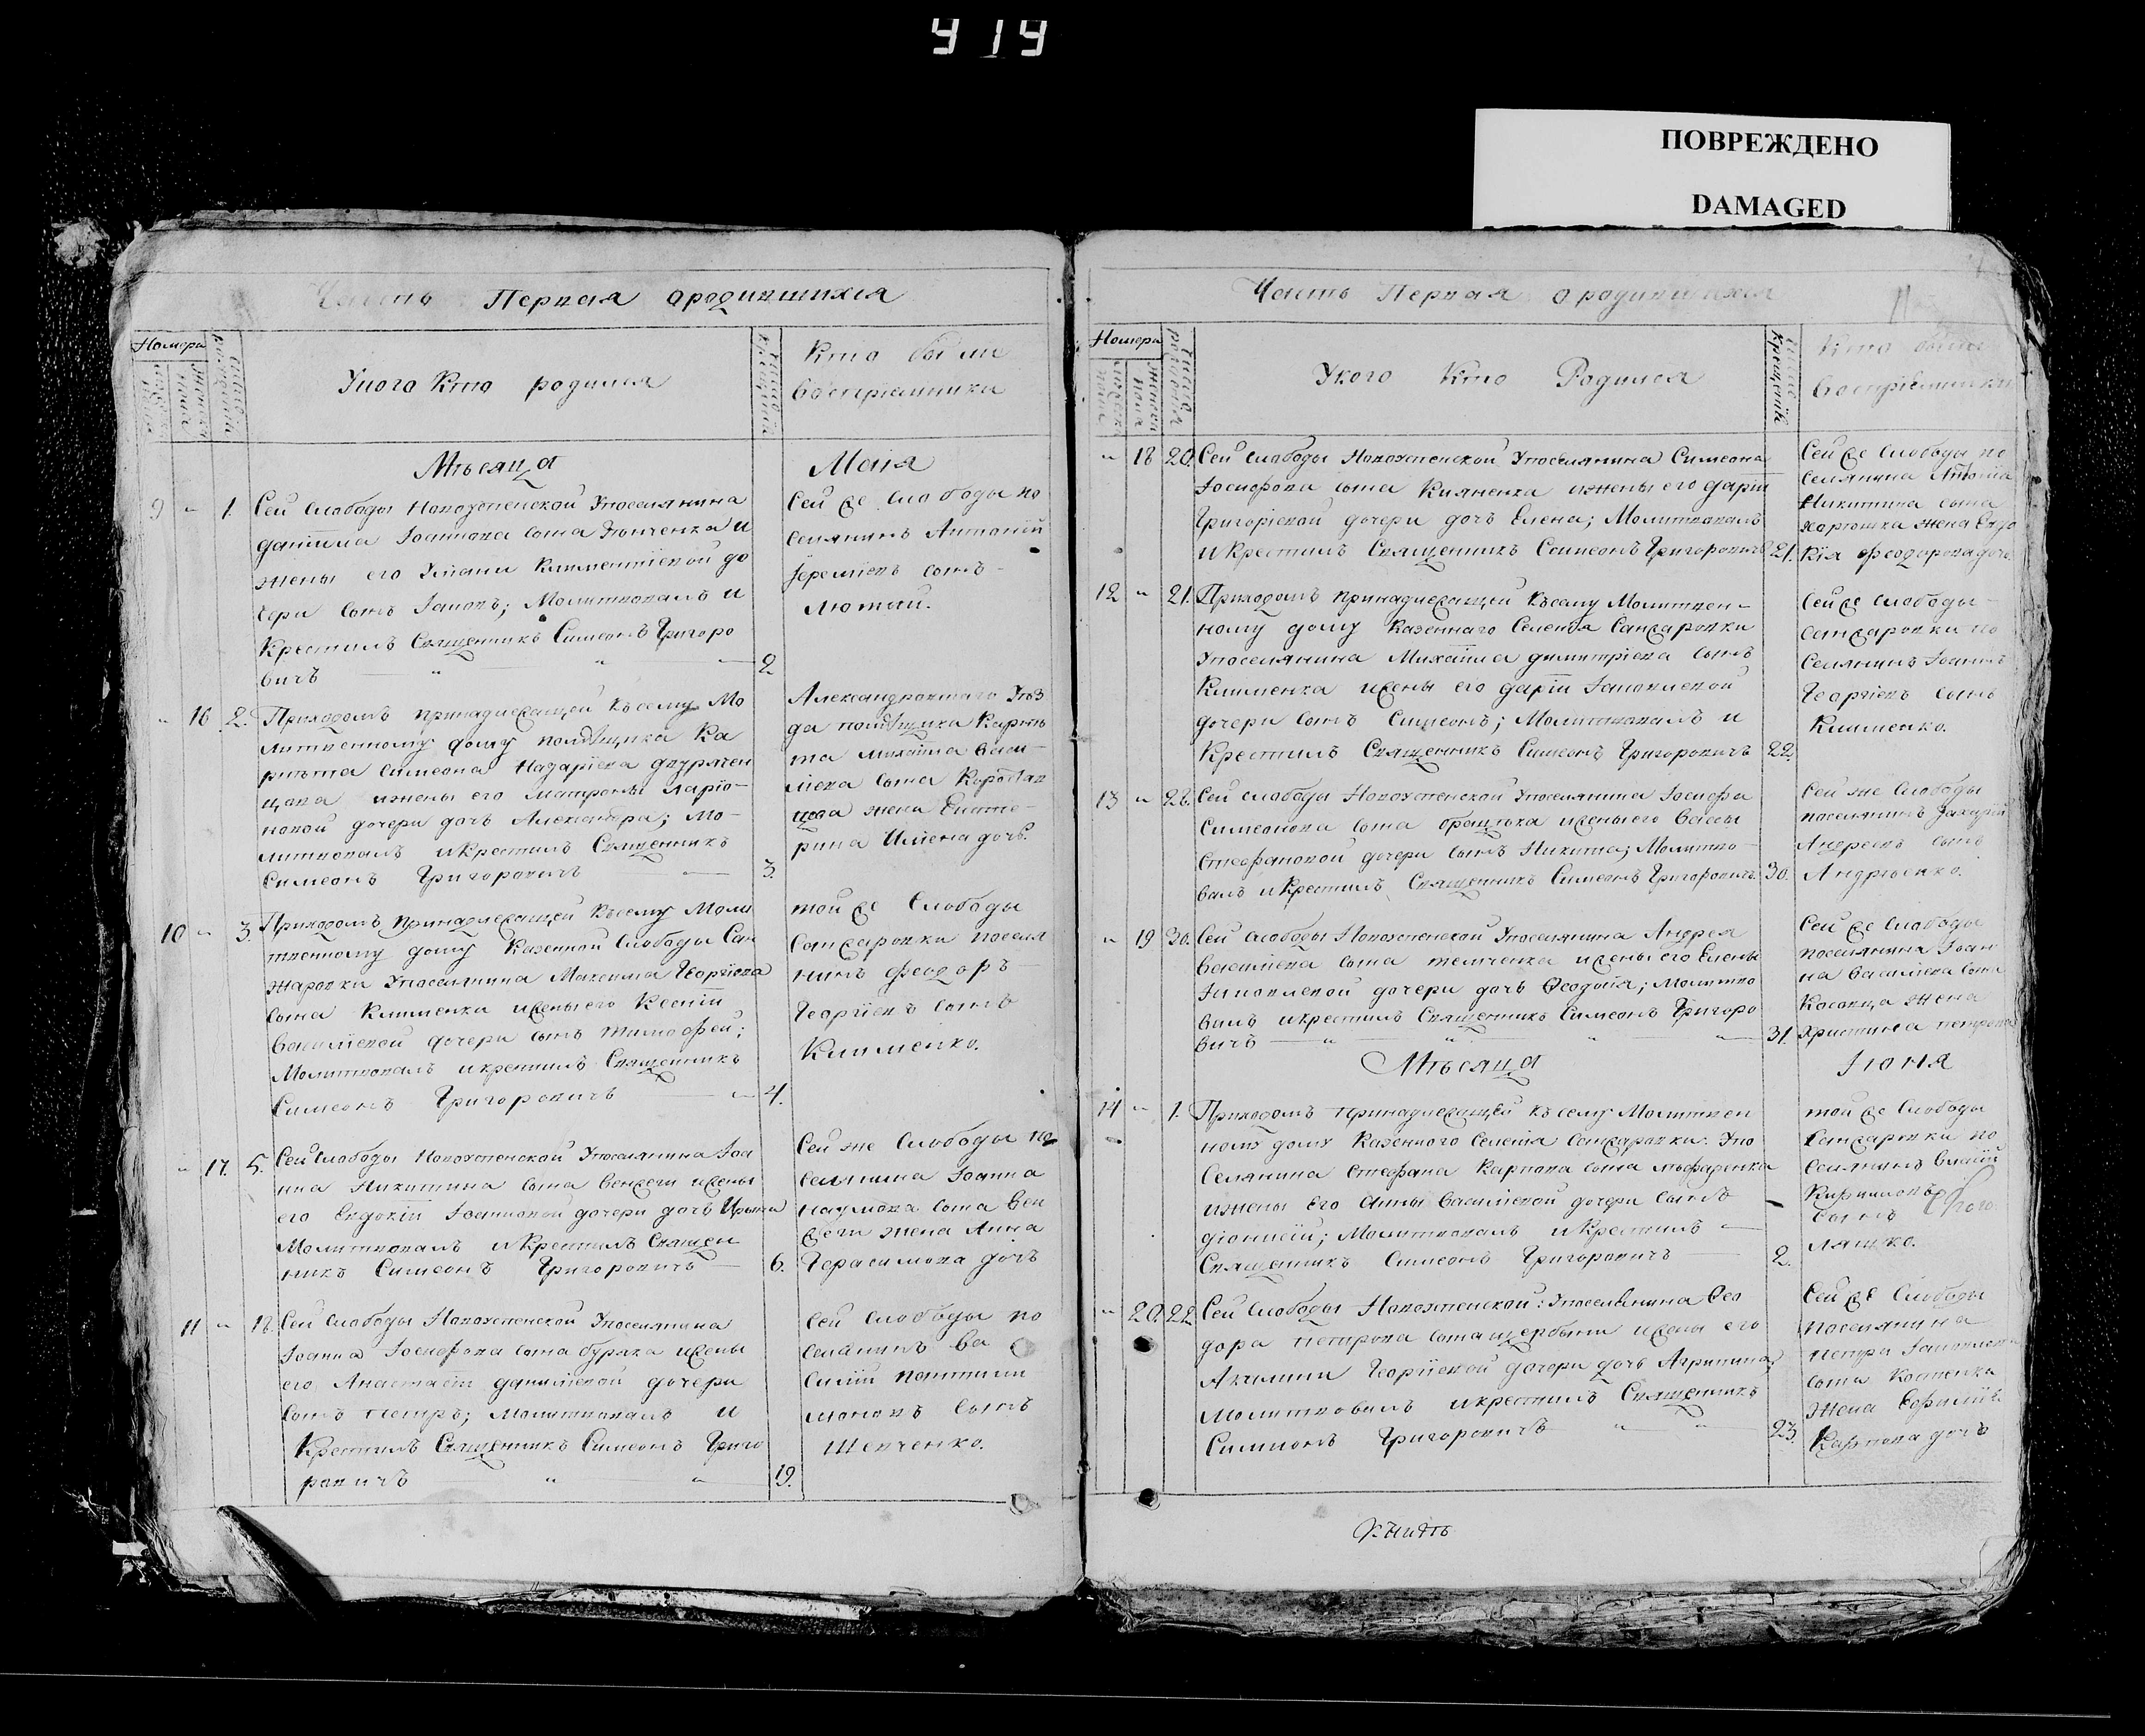 419
ПОВРЕЖДЕНО
DAMAGED
Часть Первая ородившихся
Номера
Укого Кто родился
Кто были
Воспріемники
Мѣсяца Маія
9 " 1. Сей Слободы Новоуспенской Упоселянина
Даніила Іоаннова сына
жены его Климентіевой до
чери сынъ Іаковъ; Молитвовалъ и
Крестилъ Священникъ Симеонъ Григоро
вичъ " " 2
Сей же Слободы по
селянинъ Антоній
Іереміевъ сынъ
Лютый.
" 16 2. Приходомъ принадлежащей Ксему Мо
литвенному дому помѣщика Ка
рпъта Симеона Назаріева
жены его Матроны Ларіо-
новой дочери дочь Александра; Мо-
литвовалъ иКрестилъ Священникъ
Симеонъ Григоровичъ 3.
Александровскаго Уѣз
да помѣщика
та Михаила Васи-
ліева сына
жена Екате-
рина дочь.
10 " 3. Приходомъ Принадлежащей Ксему Моли
твенному дому Казенной Слободы Сан
жаровки Упоселянина Максима Георгіева
сына Клименка иЖены его Ксеніи
Василіевой дочери сынъ Тимофей;
Молитвовалъ икрестилъ Священникъ
Симеонъ Григоровичъ 4.
той же Слободы
Санжаровки поселя
нинъ Феодоръ
Георгіевъ сынъ
Клименко.
" 17. 5. Сей Слободы Новоуспенской Упоселянина Іоа
нна Никитина сына Венжеги иЖены
его Евдокіи Іоанновой дочери дочь Ирина
Молитвовалъ иКрестилъ Священ
никъ Симеонъ Григоровичъ 6.
Сей же Слободы по
селянина Іоанна
Наумова сына Вен
жеги жена Анна
Герасимова дочь
11 " 18. Сей Слободы Новоуспенской Упоселянина
Іоанна Іосифова сына Буряка иЖены
его Анастасіи Даниліевой дочери
Сынъ Петръ; Молитвовалъ и
Крестилъ Священникъ Симеонъ Григо
ровичъ " " 19.
Сей Слободы по
селянинъ Ва
силій Пантели
моновъ сынъ
Шевченко.
Часть Первая ородившихся
Номера
Укого Кто Родился
Кто были
Воспріемники
" 18 20. Сей Слободы Новоуспенской Упоселянина Симеона
Іосифова сына Кияненка ижены его Даріи
Григоріевой дочери дочь Елена; Молитвовалъ
иКрестилъ Священникъ Симеонъ Григоровичъ 21.
Сей же Слободы по
селянина Антонія
Никитина сына
жена Евдо
кія Феодорова дочь.
12 " 21. Приходомъ принадлежащей Ксему Молитвен-
ному дому Казеннаго Селенія Санжаровки
Упоселянина Михаила Димитріева сынъ
Клименка иЖены его Даріи Іаковлевой
дочери сынъ Симеонъ; Молитвовалъ и
Крестилъ Священникъ Симеонъ Григоровичъ 22.
Сей же Слободы
Санжаровки по
селянинъ Іоаннъ
Георгіевъ сынъ
Клименко.
13 " 28. Сей Слободы Новоуспенской Упоселянина Іосифа
Симеонова сына иЖены его Вассы
Стефановой дочери сынъ Никита; Молитво-
валъ иКрестилъ Священникъ Симеонъ Григоровичъ. 30.
Сей же Слободы
поселянинъ Захарій
Андреевъ сынъ
Андрѣенко.
" 19 30. Сей Слободы Новоуспенской Упоселянина Андрея
Василіева сына иЖены его Елены
Іаковлевой дочери дочь Ѳеодосія; Молитво
валъ икрестилъ Священникъ Симеонъ Григоро
вичъ " " " " 31.
Сей же Слободы
поселянина Іоан
на Василіева сына
Косовца жена
Христина Петрова
Мѣсяца Іюня
14 " 1. Приходомъ принадлежащей Ксему Молитвен
ному дому Казенного Селенія Санжаровки: Упо
Селянина Стефана Карпова сына
ижены Его Анны Василіевой дочери сынъ
Діонисій; Молитвовалъ иКрестилъ
Священникъ Симеонъ Григоровичъ 2.
той же Слободы
Санжаровки по
селянинъ Власій
Кириловъ
сынъ
" 20. 22. Сей Слободы Новоуспенской: Упоселянина Ѳео
дора Петрова сына Щербыни иЖены его
Акилины Георгіевой дочери дочь Агрипина;
Молитвовалъ икрестилъ Священникъ
Симеонъ Григоровичъ " " 23.
Сей же Слободы
поселянина
Петра Іаковлева
сына Костенка
Жена Евфимія
Карпова дочь